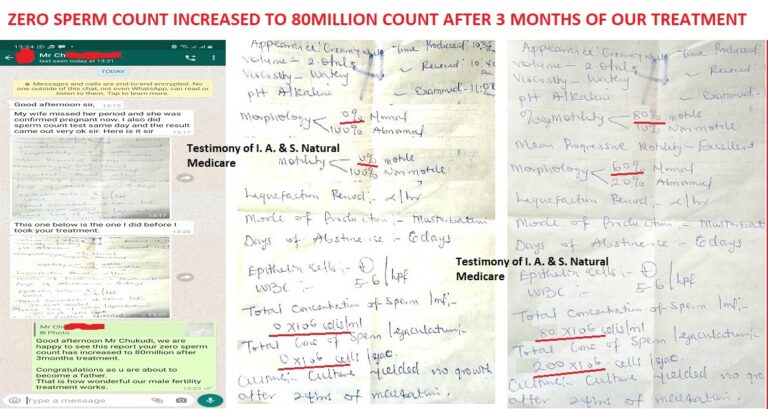 ZERO SPERM COUNT INCREASED TO 80MILLION COUNT AFTER 3 MONTHS OF OUR TREATMENT
13:24
Mr Ch
last seen today at 13:21
TODAY
Messages and calls are end-to-end encrypted. No
one outside of this chat, not even WhatsApp, can read or
listen to them. Tap to learn more.
Good afternoon sir,
13:15
My wife missed her period and she was
confirmed pregnant now. I also did
sperm count test same day and the result
came out very ok sir. Here is it sir
13:17
13:17
This one below is the one I did before I
took your treatment.
13:20
13:20
Mr Ch
Photo
Good afternoon Mr Chukudi, we are
happy to see this report your zero sperm
count has increased to 80million after
3months treatment.
Congratulations as u are about to
become a father.
That is how wonderful our male fertility
treatment works.
13:23
Type a message
Appearance: Creamy
Time Produced
Volume - 2.0mls
Received: 10.40
Viscosity - Watery
Examined - 11:08
pH Alkaline
Morphology
0% Normal
100% Abnormal
Testimony of I. A. & S. Natural
Medicare
Motility
0% motile
100% Non motile
Liquefaction
Mode of Production - Masturbation
Days of Abstinence - 6days
Epithelia Cells:-
WBC :- 5-6/hpf
Total Concentration of Sperm
0 X106 cells/ml
Total Conc of Sperm /ejaculation;-
0 X106 cells
Culture;- Culture yielded no growth
after 24hrs of incubation.
Appearance: Creamy
Time Produced
Volume - 2.0mls
Received:
Viscosity - Watery
Examined
pH Alkaline
Motility
80% motile
10% Non motile
Mean Progressive Motility - Excellent
Morphology
60% Normal
20% Abnormal
Liquefaction
Mode of Production - Masturbat
Days of Abstinence - 6days
Testimony of I. A. & S. Natural
Medicare
Epithelia Cells;-
WBC :- 5-6/hpf
Total Concentration of Sperm
80 X106 cells/ml
Total Conc of Sperm /ejaculation;-
200 X106 cells
Culture:- Culture yielded no
after 24hrs of incubation.